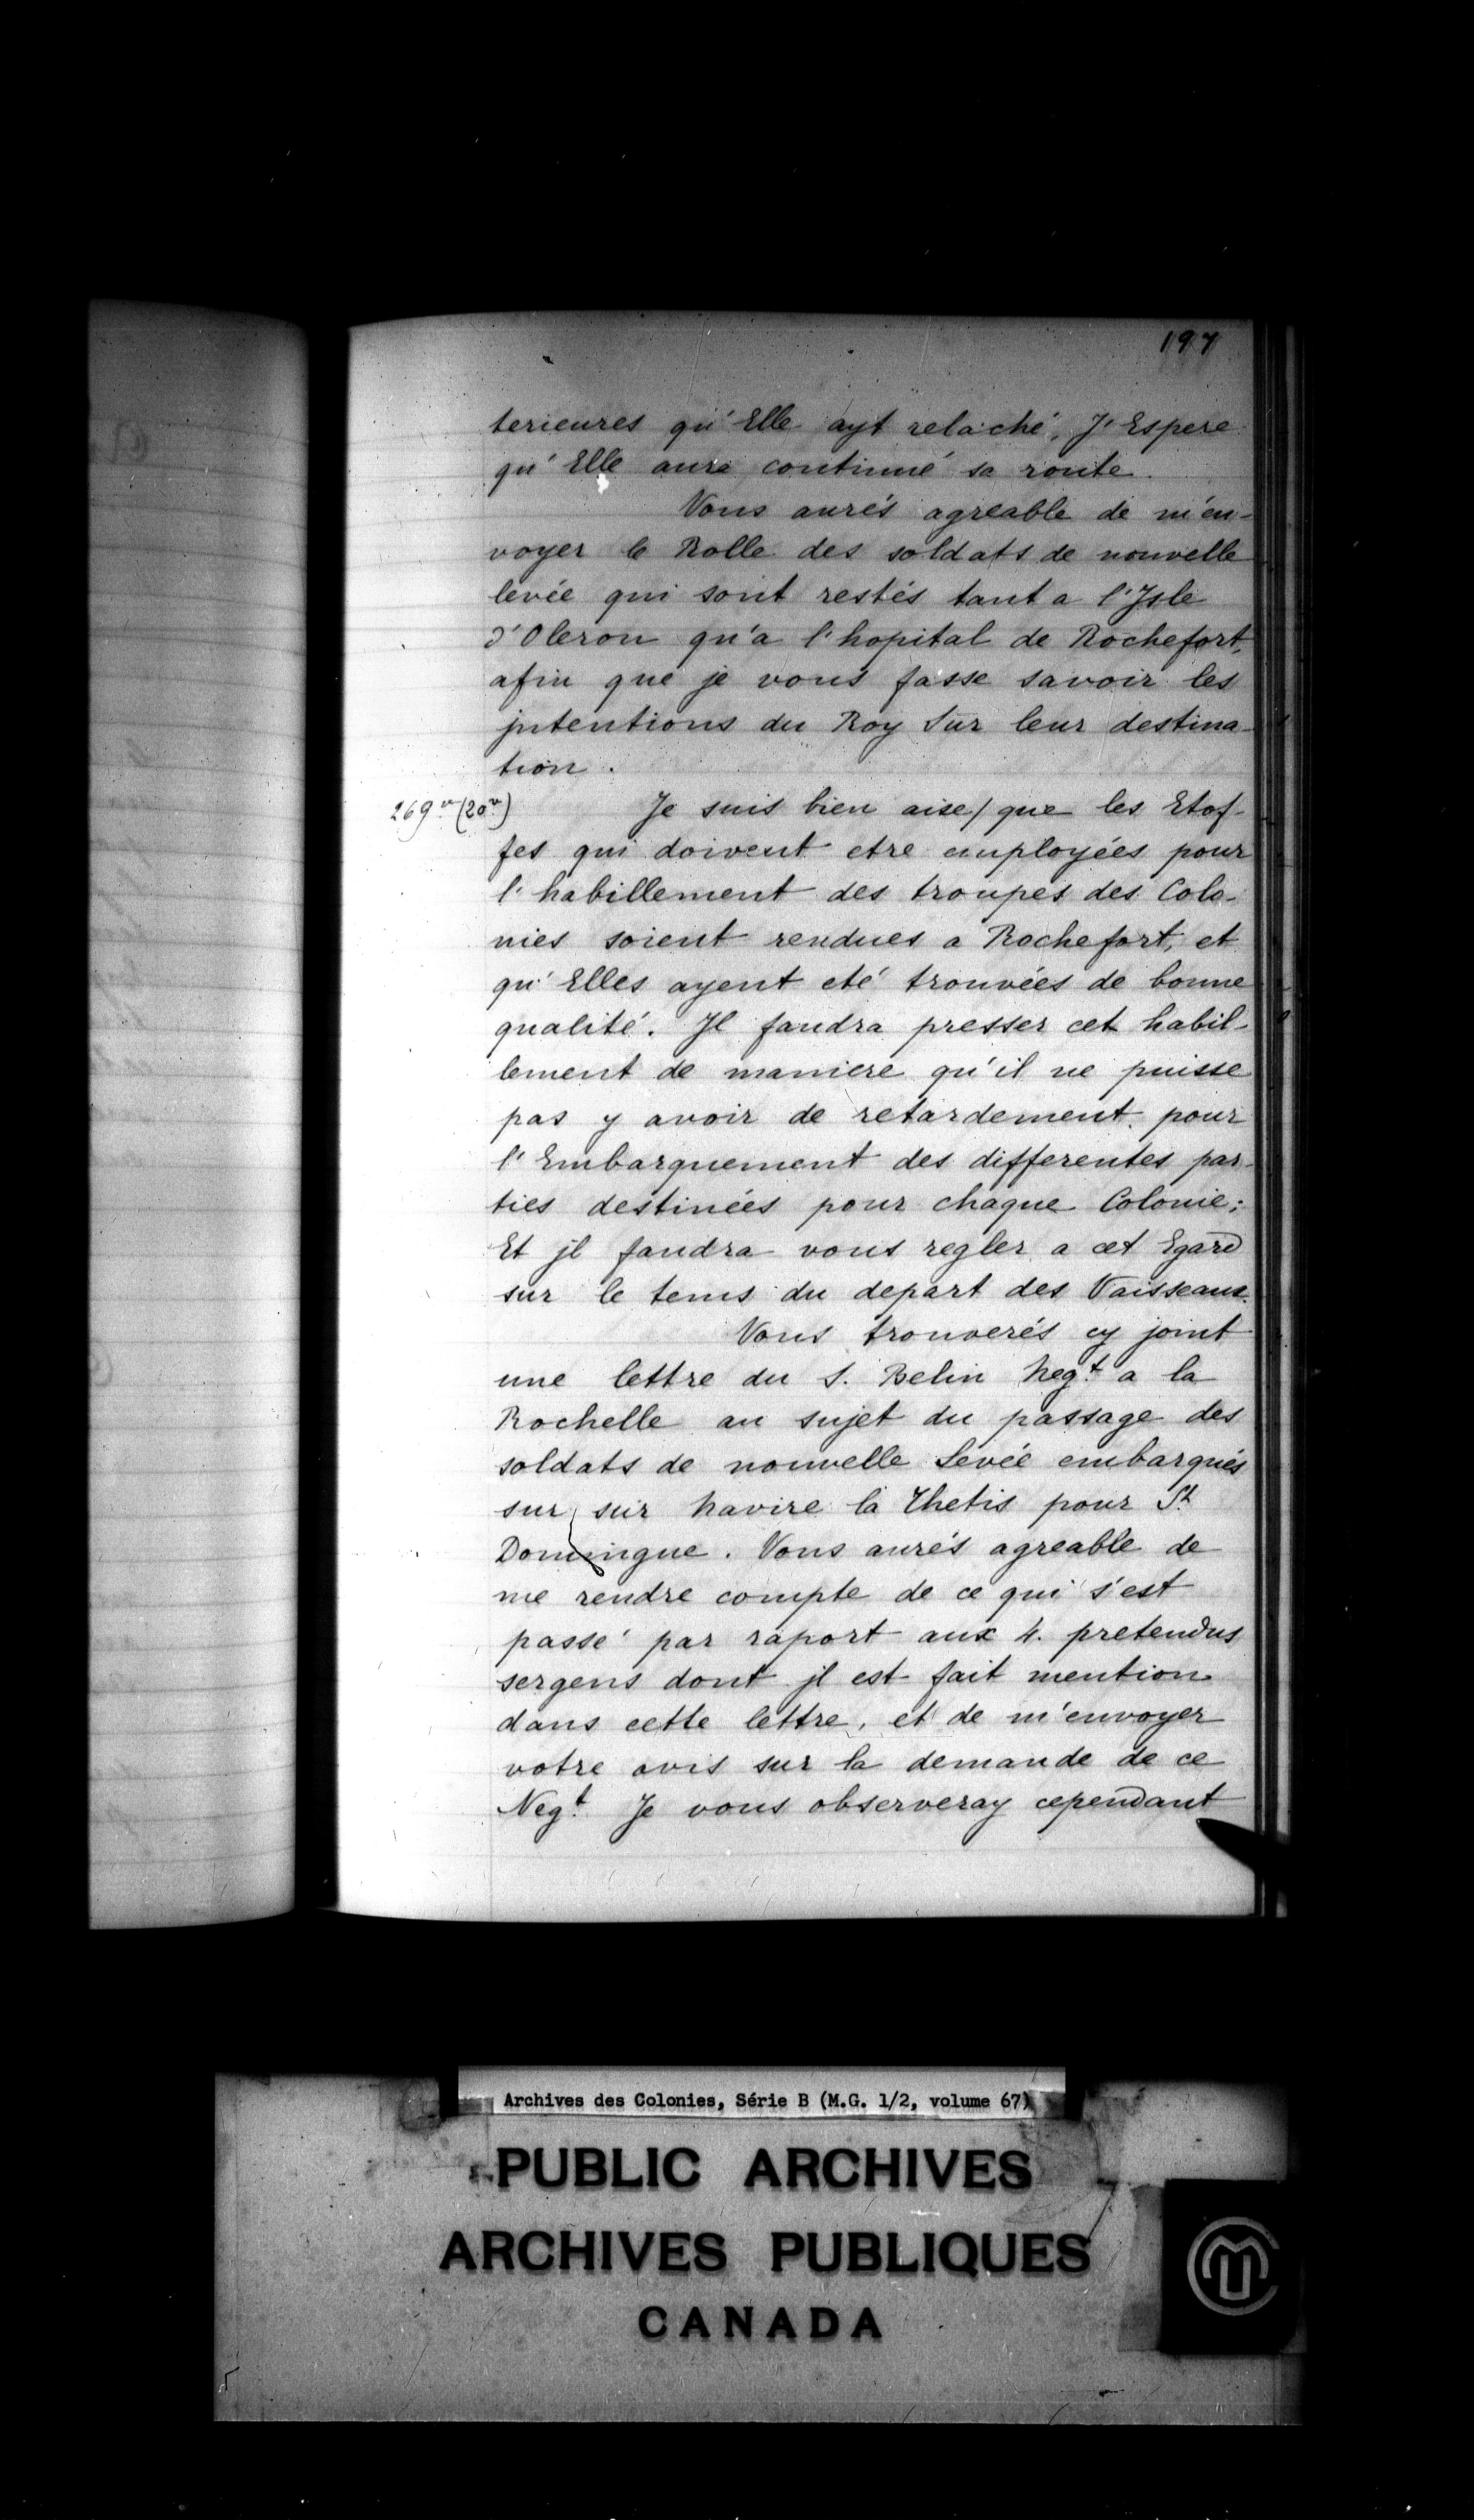 197
terieures qu'Elle ayt relaché, J'Espere
qu'Elle aura continué sa route.
Vous aurés agreable de m'en-
voyer le Rolle des soldats de nouvelle
levée qui sont restés tant a l'Isle
d'Oleron qu'a l'hopital de Rochefort,
afin que je vous fasse savoir les
jntentions du Roy sur leur destina-
tion.
269 vo (20 vo) Je suis bien aise/que les Etof-
fes qui doivent etre employées pour
l'habillement des troupes des Colo-
nies soient rendues a Rochefort, et
qu'Elles ayent eté trouvées de bonne
qualité. Jl faudra presser cet habil-
lement de maniere qu'il ne puisse
pas y avoir de retardement pour
l'Embarquement des differentes par-
ties destinées pour chaque Colonie;
Et jl faudra vous regler a cet Egard
sur le tems du depart des Vaisseaux.
Vous trouverés cy joint
une lettre du S. Belin Negt. a la
Rochelle au sujet du passage des
soldats de nouvelle Levée embarqués
sur sur navire la Thetis pour St
Domingue. Vous aurés agreable de
me rendre compte de ce qui s'est
passé par raport aux 4. pretendus
sergens dont jl est fait mention
dans cette lettre, et de m'envoyer
votre avis sur la demande de ce
Negt. Je vous observeray cependant
Archives des Colonies, Série B (M.G. 1/2, volume 67)
PUBLIC ARCHIVES
ARCHIVES PUBLIQUES
CANADA